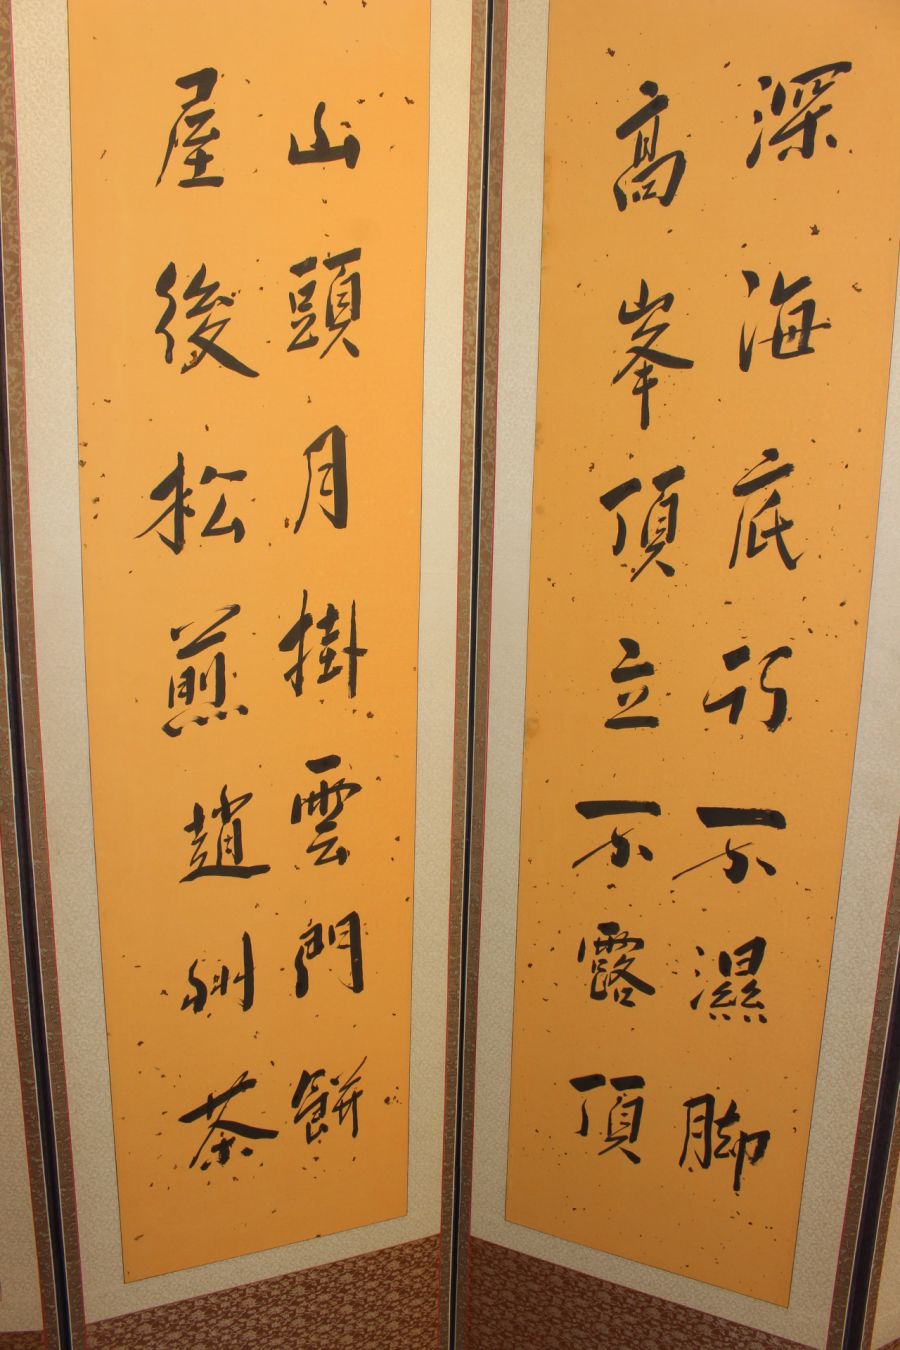 深海底行不濕脚
高峯頂立不露頂
山頭月掛雲門餅
屋後松煎趙州茶